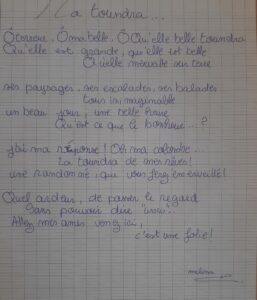 La toundra...
Ô toundra, Ô ma belle, Ô Qu'elle belle toundra
Qu'elle est grande, qu'elle est belle
Qu'elle merveille sur terre
ses paysages, ses escalades, ses balades
tous inimaginable
un beau jour, une belle
Qu'est ce que le bonheur...?
j'ai ma réponse! Oh ma
La toundra de mes rêves!
une randonnée, qui vous émerveille!
Quel ardeur, de passer le regard
Sans pouvoir dire
Allez mes amis venez ici,
c'est une folie!
melina